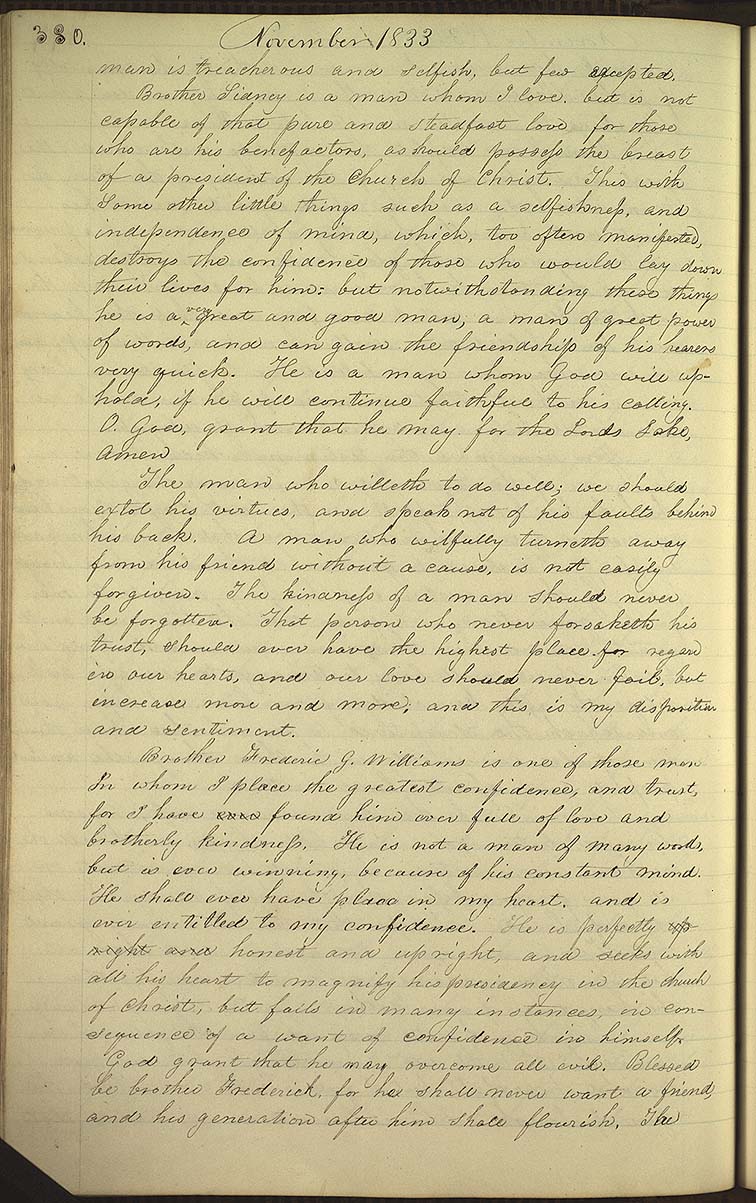 380. November 1833
man is treacherous and selfish, but few excepted.
Brother Sidney is a man whom I love. but is not
capable of that pure and steadfast love for those
who are his benefactors, as should possess the breast
of a president of the Church of Christ. This with
some other little things such as a selfishness, and
independence of mind, which, too often manifested,
destroys the confidence of those who would lay down
their lives for him: but notwithstanding these things
he is a very great and good man, a man of great power
of words, and can gain the friendship of his hearers
very quick. He is a man whom God will up-
hold, if he will continue faithful to his calling.
O. God, grant that he may for the Lords Sake,
Amen
The man who willeth to do well; we should
extol his virtues, and speak not of his faults behind
his back. A man who wilfully turneth away
from his friend without a cause, is not easily
forgiven. The kindness of a man should never
be forgotten. That person who never forsaketh his
trust, should ever have the highest place for regard
in our hearts, and our love should never fail, but
increase more and more, and this is my disposition
and sentiment.
Brother Frederic G. Williams is one of those men
In whom I place the greatest confidence, and trust,
for I have found him ever full of love and
brotherly kindness. He is not a man of many words,
but is ever winning, because of his constant mind.
He shall ever have place in my heart. and is
ever entitled to my confidence. He is perfectly up-
right and honest and upright, and seeks with
all his heart to magnify his presidency in the church
of christ, but fails in many instances, in con-
sequence of a want of confidence in himself.
God grant that he may overcome all evil. Blessed
be brother Frederick, for he shall never want a friend,
and his generation after him shall flourish. The